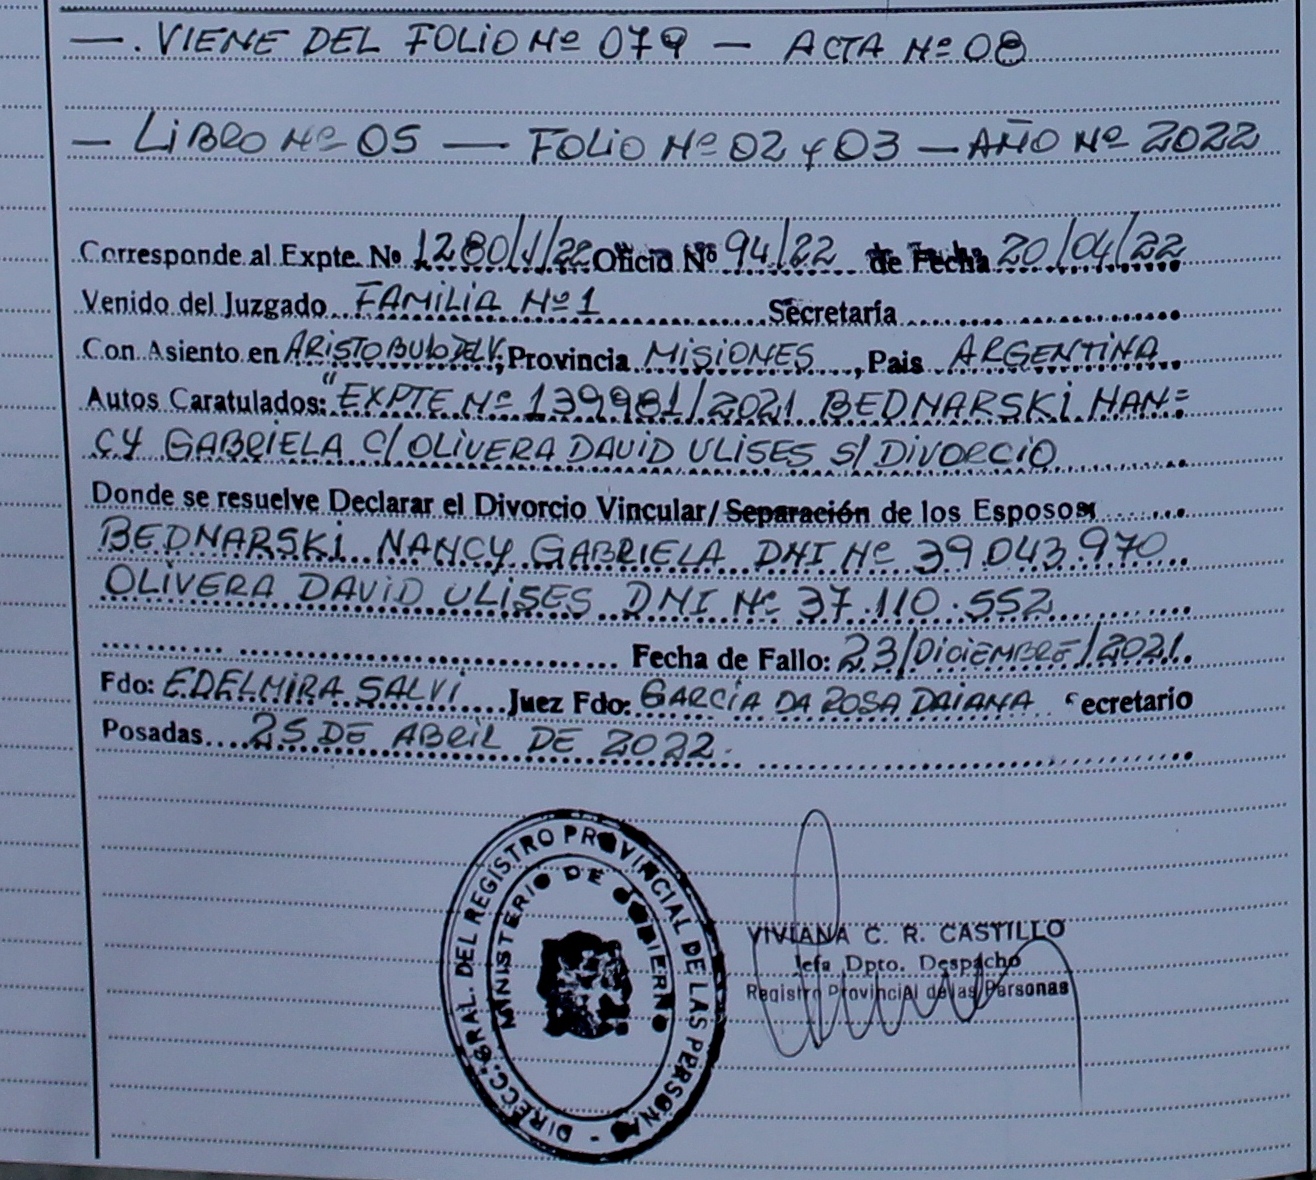 —. VIENE DEL FOLIO Nº 079 — ACTA Nº 08
— LIBRO Nº 05 — FOLIO Nº 02 y 03 — AÑO Nº 2022
Corresponde al Expte. Nº 1280/J/22 Oficio Nº 94/22 de Fecha 20/04/22
Venido del Juzgado FAMILIA Nº 1 Secretaría
Con Asiento en ARISTOBULO DEL V, Provincia MISIONES, Pais ARGENTINA
Autos Caratulados: "EXPTE Nº 139981/2021 BEDNARSKI NAN=
CY GABRIELA C/ OLIVERA DAVID ULISES S/ DIVORCIO
Donde se resuelve Declarar el Divorcio Vincular/Separación de los Esposos
BEDNARSKI NANCY GABRIELA DNI Nº 39.043.970
OLIVERA DAVID ULISES DNI Nº 37.110.552
Fecha de Fallo: 23/DICIEMBRE/2021.
Fdo: EDELMIRA SALVI Juez Fdo: GARCÍA DA ROSA DAIANA Secretario
Posadas 25 DE ABRIL DE 2022.
DIRECC. GRAL. DEL REGISTRO PROVINCIAL DE LAS PERSONAS -
MINISTERIO DE GOBIERNO
VIVIANA C. R. CASTILLO
Jefa Dpto. Despacho
Registro Provincial de las Personas